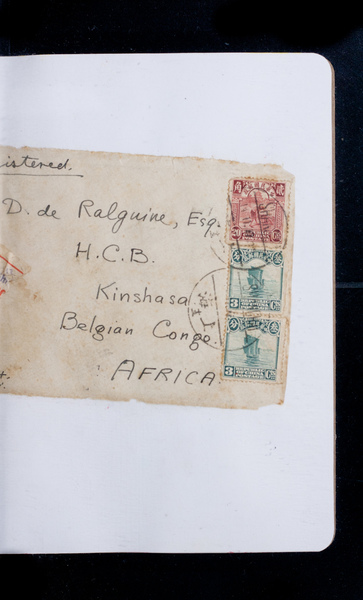 istered.
D. de Ralguine, Esq.
H.C.B.
Kinshasa
Belgian Congo
AFRICA
3
3